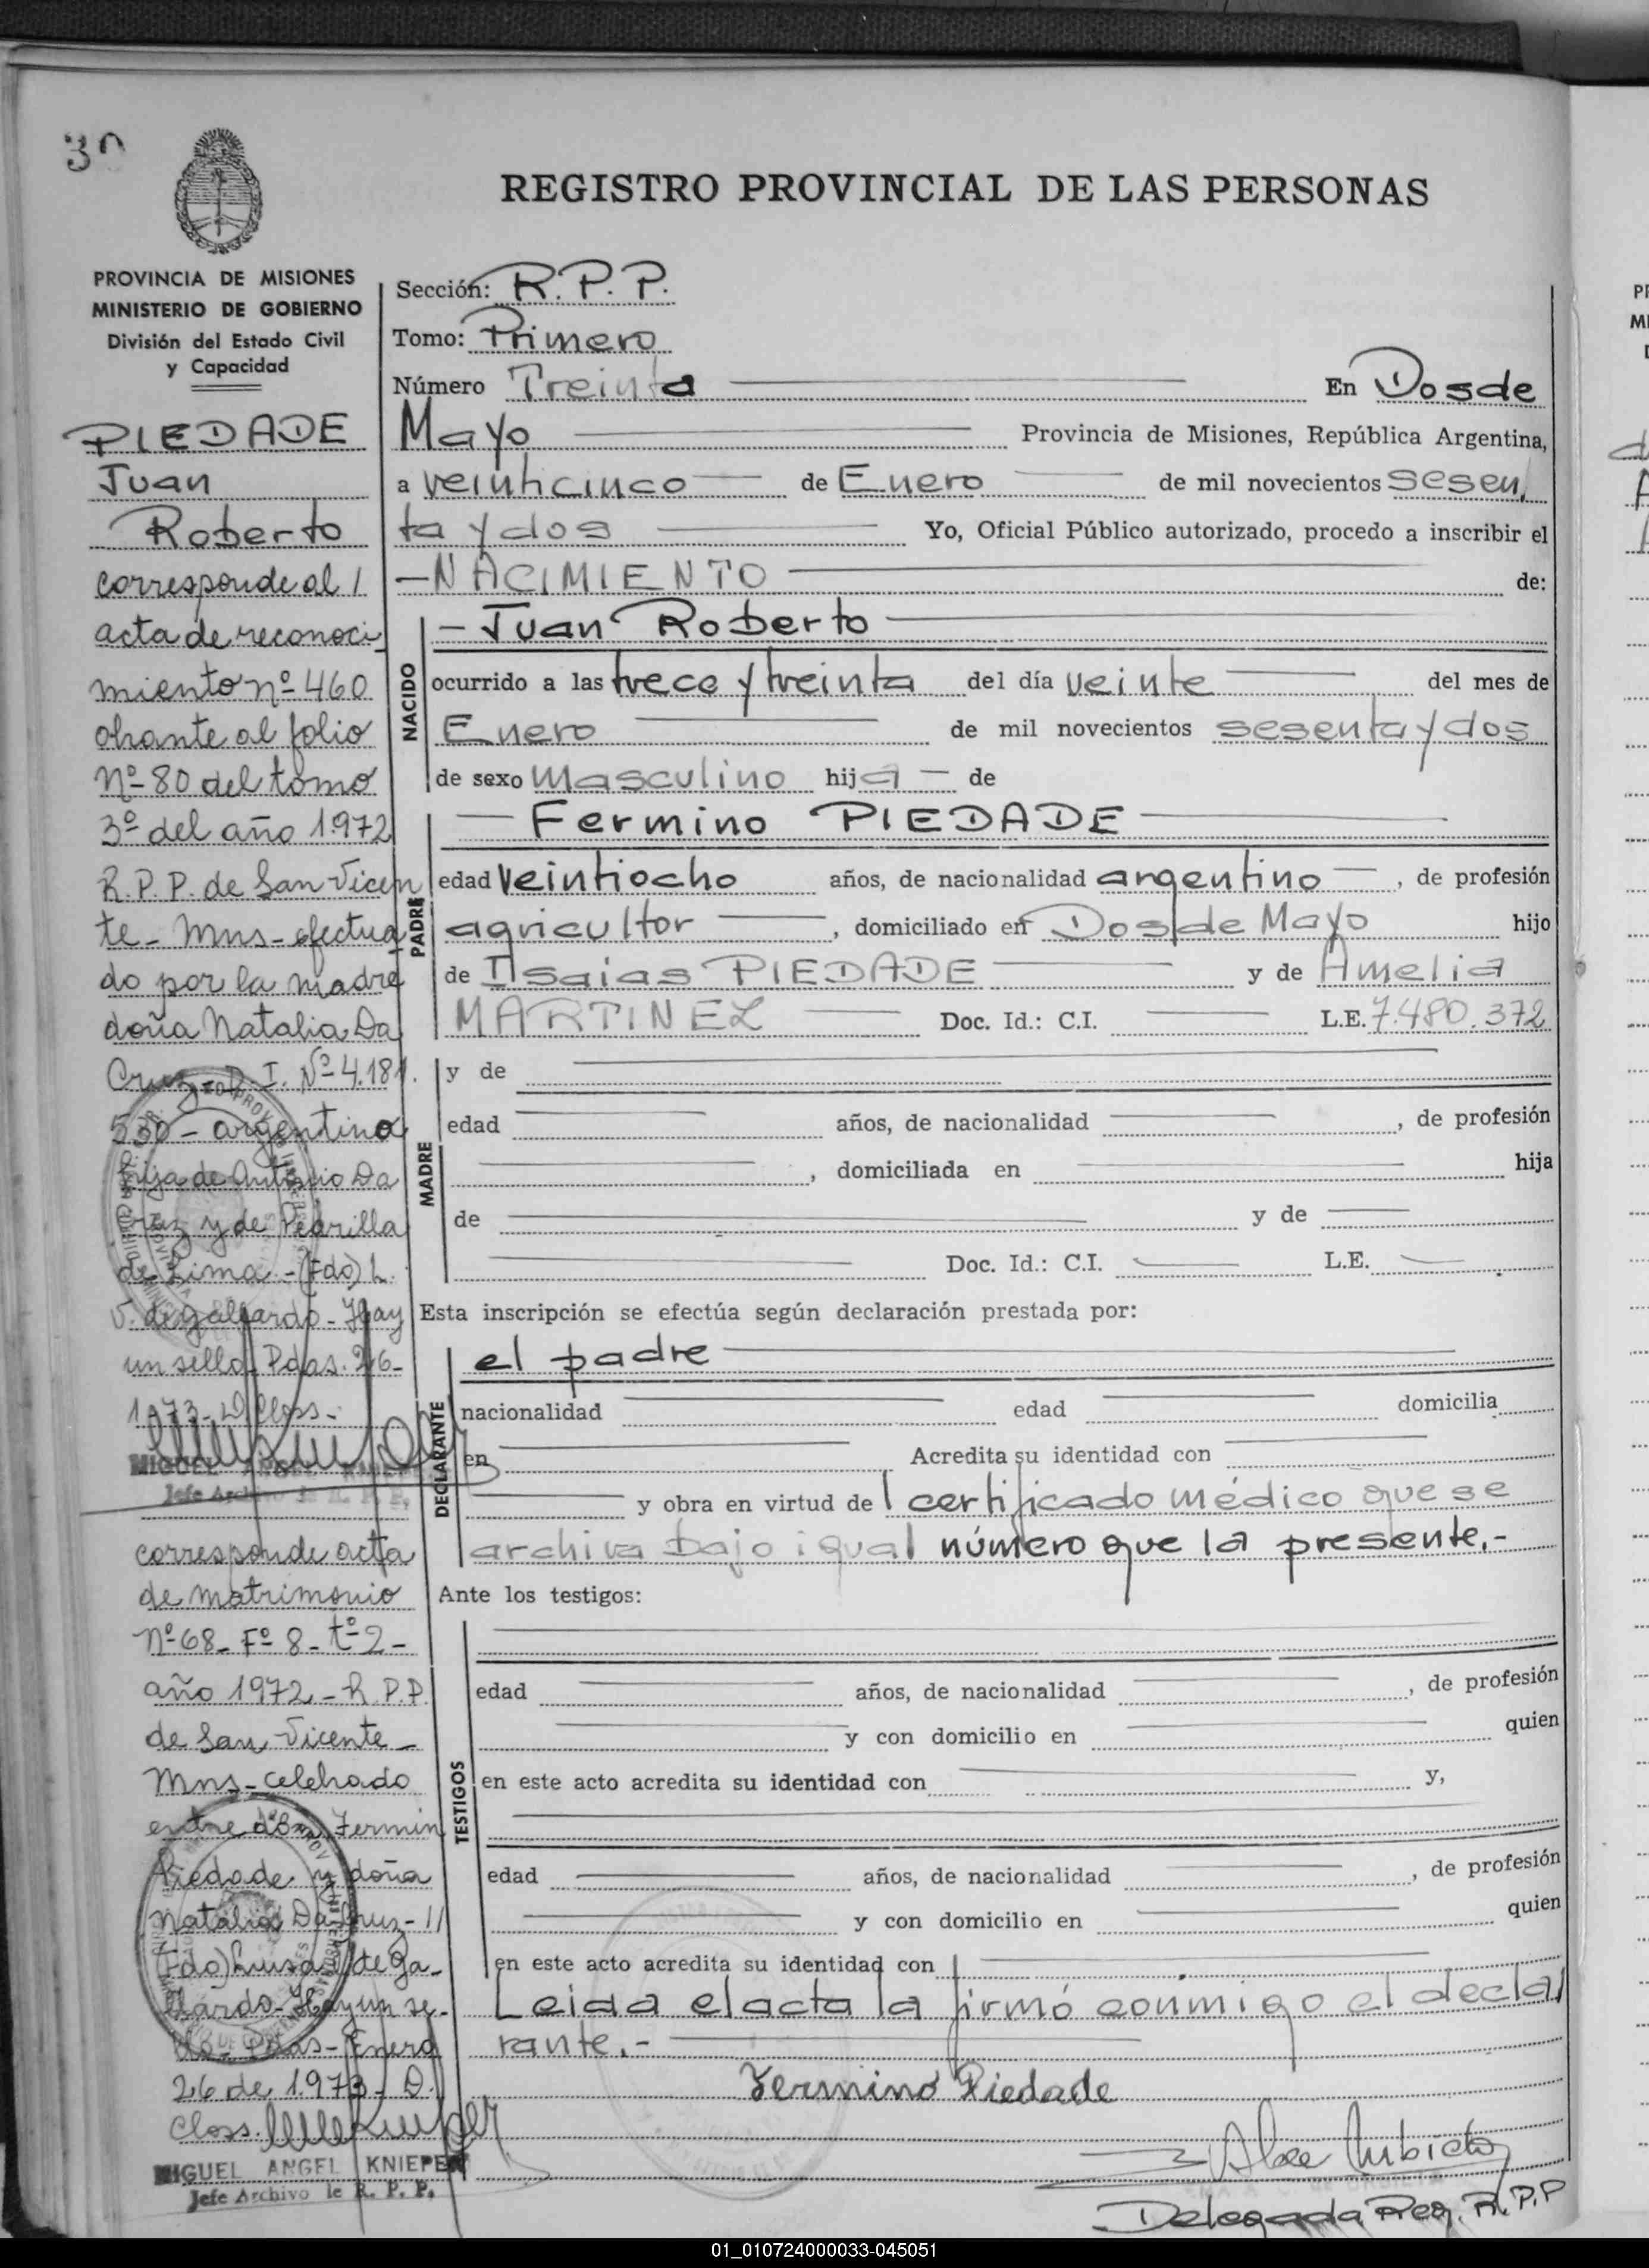 30
REGISTRO PROVINCIAL DE LAS PERSONAS
PROVINCIA DE MISIONES
MINISTERIO DE GOBIERNO
División del Estado Civil
y Capacidad
PIEDADE
Juan
Roberto
corresponde al
acta de reconoci
miento nº 460
obrante al folio
Nº 80 del tomo
3º del año 1972
R.P.P. de San Vicen
te - Mns - efectua
do por la madre
doña Natalia Da
Cruz - D. I. Nº 4.181.
530 - argentina
hija de Antonio Da
Cruz y de Pedrilla
de Lima - (Fdo) L.
V. de Gallardo - Hay
un sello. Pdas. 26-
1973 - D. Closs -
MIGUEL ANGEL
Jefe Archivo de R. P. P.
corresponde acta
de matrimonio
Nº 68 - Fº 8 - tº 2 -
año 1972 - R.P.P.
de San Vicente -
Mns - celebrado
entre don Fermin
Piedade y doña
Natalia Da Cruz -
(Fdo) Luisa V de Ga-
llardo - Hay un se-
llo - Pdas - Enero
26 de 1973 - D.
Closs.
MIGUEL ANGEL KNIEPER
Jefe Archivo de R. P. P.
Sección: R.P.P.
Tomo: Primero
Número Treinta En Dos de
Mayo Provincia de Misiones, República Argentina,
a veinticinco de Enero de mil novecientos sesen
ta y dos Yo, Oficial Público autorizado, procedo a inscribir el
- NACIMIENTO de:
NACIDO
- Juan Roberto
ocurrido a las trece y treinta del día veinte del mes de
Enero de mil novecientos sesenta y dos
de sexo masculino hijo de
PADRE
Fermino PIEDADE
edad veintiocho años, de nacionalidad argentino, de profesión
agricultor, domiciliado en Dos de Mayo hijo
de Isaias PIEDADE y de Amelia
MARTINEZ Doc. Id.: C.I. L.E. 7.480.372
MADRE
y de
edad años, de nacionalidad , de profesión
, domiciliada en hija
de y de
Doc. Id.: C.I. L.E.
Esta inscripción se efectúa según declaración prestada por:
DECLARANTE
el padre
nacionalidad edad domicilia
en Acredita su identidad con
y obra en virtud del certificado médico que se
archiva bajo igual número que la presente.-
Ante los testigos:
TESTIGOS
edad años, de nacionalidad , de profesión
y con domicilio en quien
en este acto acredita su identidad con y,
edad años, de nacionalidad , de profesión
y con domicilio en quien
en este acto acredita su identidad con
Leida el acta la firmó conmigo el decla
rante.-
Fermino Piedade
Delegada Reg. R.P.P
01_010724000033-045051